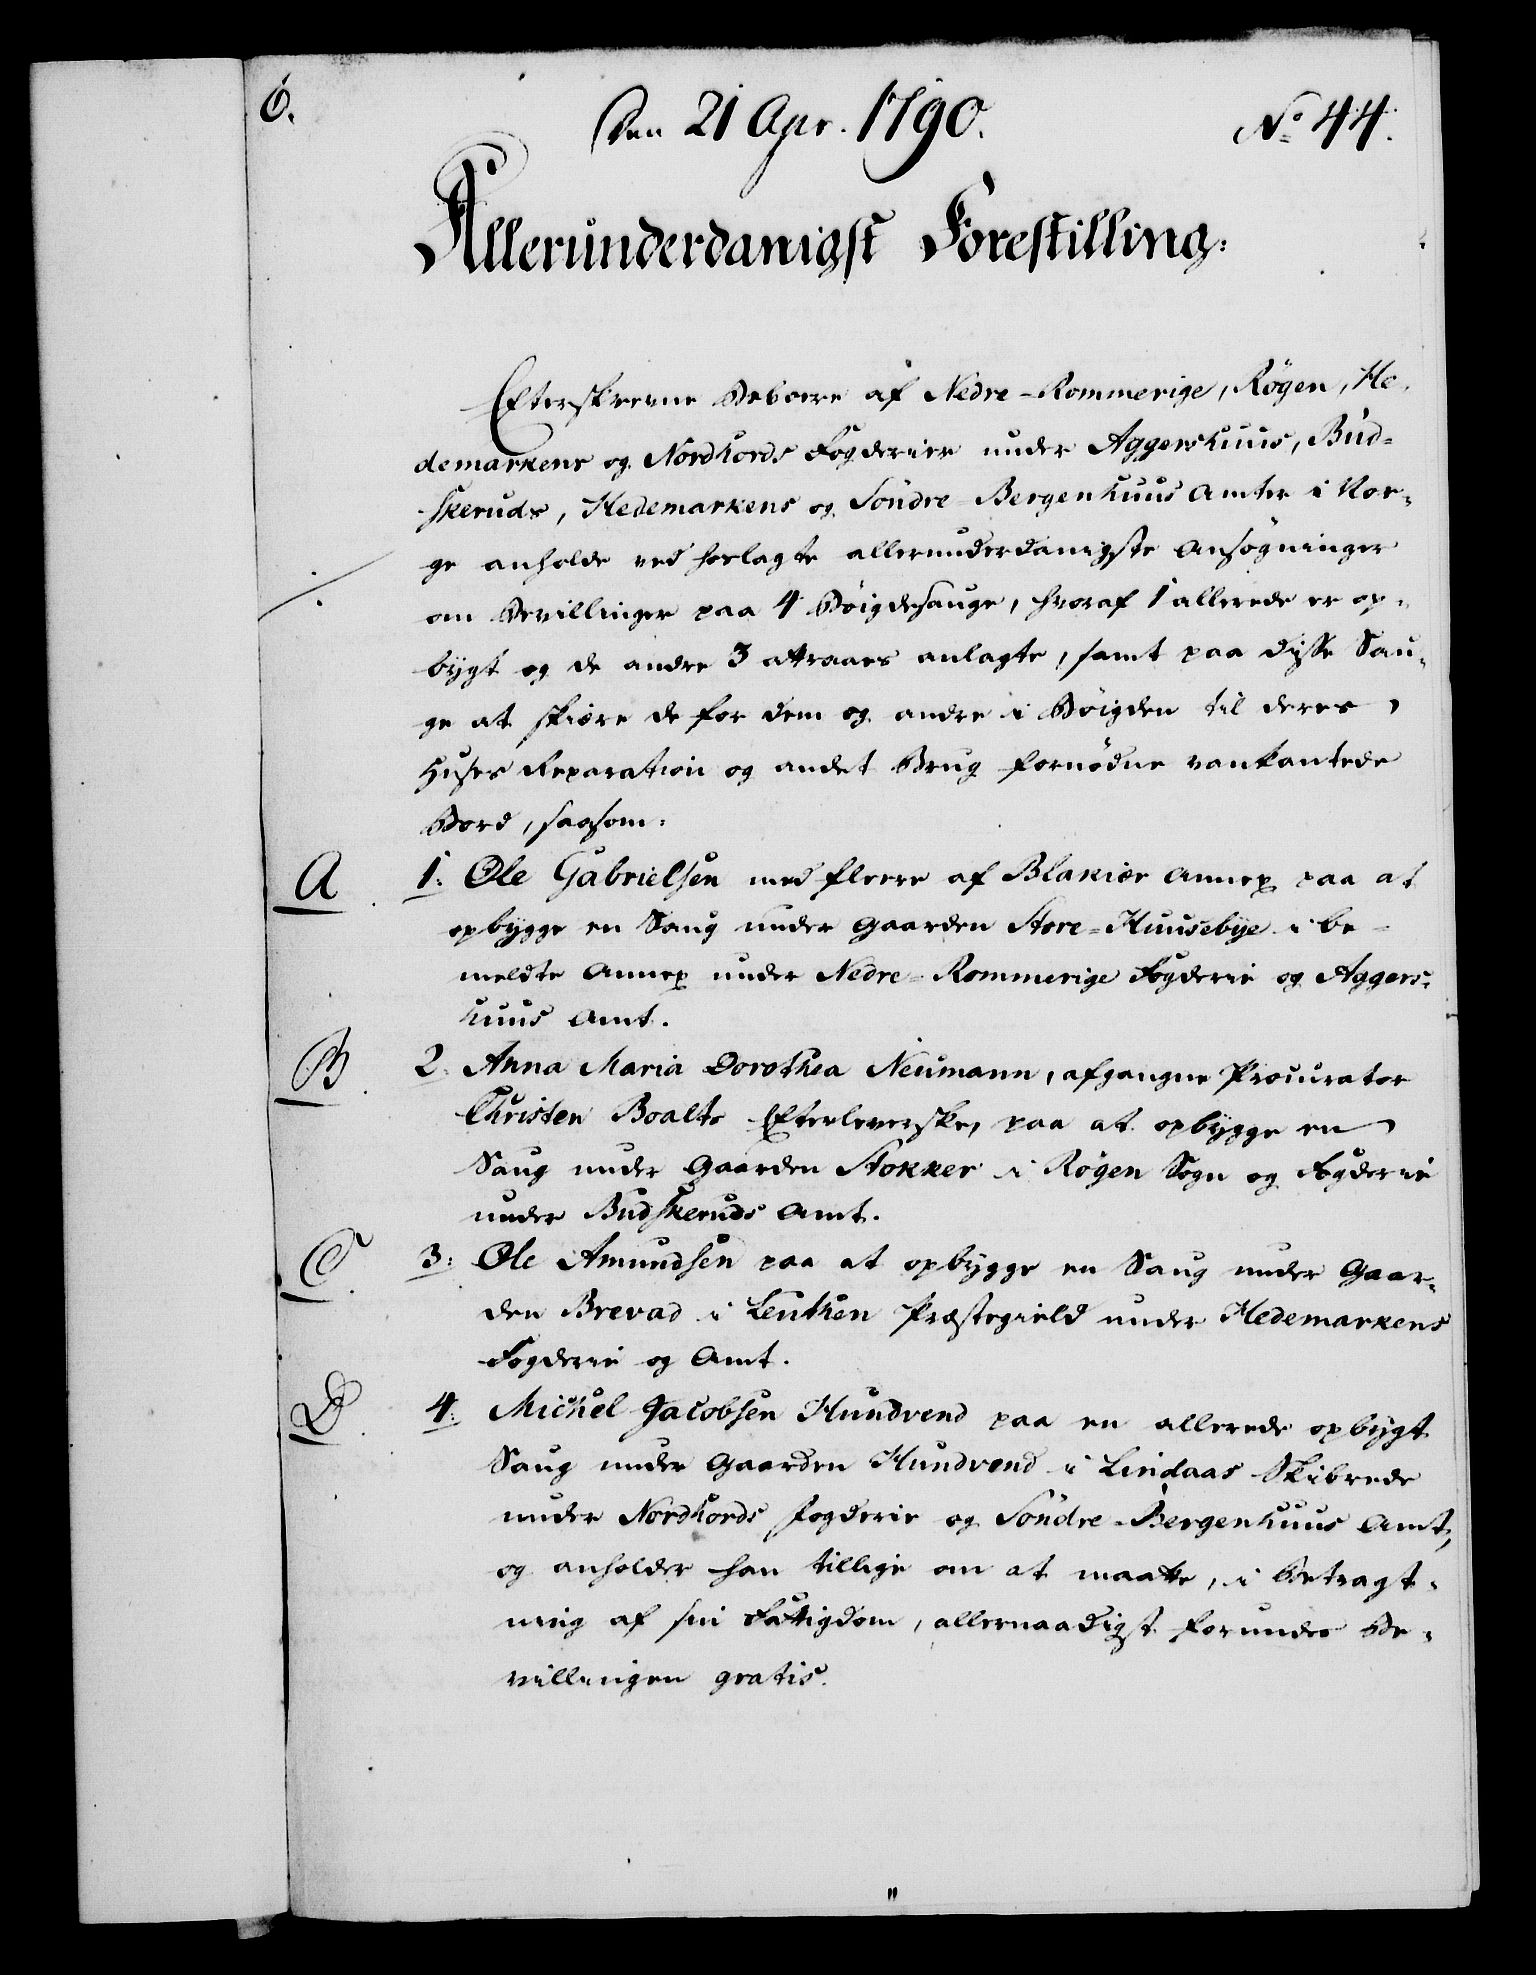 6.
Den 21 Apr. 1790.
No 44.
Allerunderdanigst Forestilling.
Efterskrevne Beboere af Nedre-Rommerige, Røgen, He-
demarkens og Nordhords Fogderier under Aggershuus, Bud-
skeruds, Hedemarkens og Söndre-Bergenhuus Amter i Nor-
ge anholde ved hoslagte allerunderdanigste Ansøgninger
om Bevillinger paa 4 Bøigdesauge, hvoraf 1 allerede er op-
bygt og de andre 3 attraaes anlagte, samt paa disse Sau-
ge at skiære de for dem og andre i Bøigden til deres
Huses Reparation og andet Brug fornødne vankantede
Bord, saasom:
A
1: Ole Gabrielsen med fleere af Blakiær Annex paa at
opbygge en Saug under Gaarden Store-Huusebye i be-
meldte Annex under Nedre-Rommerige Fogderie og Aggers-
huus Amt.
B
2. Anna Maria Dorothea Neumann, afgangne Procurator
Christen Boalts Efterleverske, paa at opbygge en
Saug under Gaarden Stokker i Røgen Sogn og Fogderie
under Budskeruds Amt.
C
3: Ole Amundsen paa at opbygge en Saug under Gaar-
den Brevad i Leuthen Præstegield under Hedemarkens
Fogderie og Amt.
D
4: Michel Jacobsen Hundvend paa en allerede opbygt
Saug under Gaarden Hundvend i Lindaas Skibrede
under Nordhords Fogderie og Söndre-Bergenhuus Amt,
og anholder han tillige om at maatte, i Betragt-
ning af sin Fattigdom, allernaadigst forundes Be-
villingen gratis.